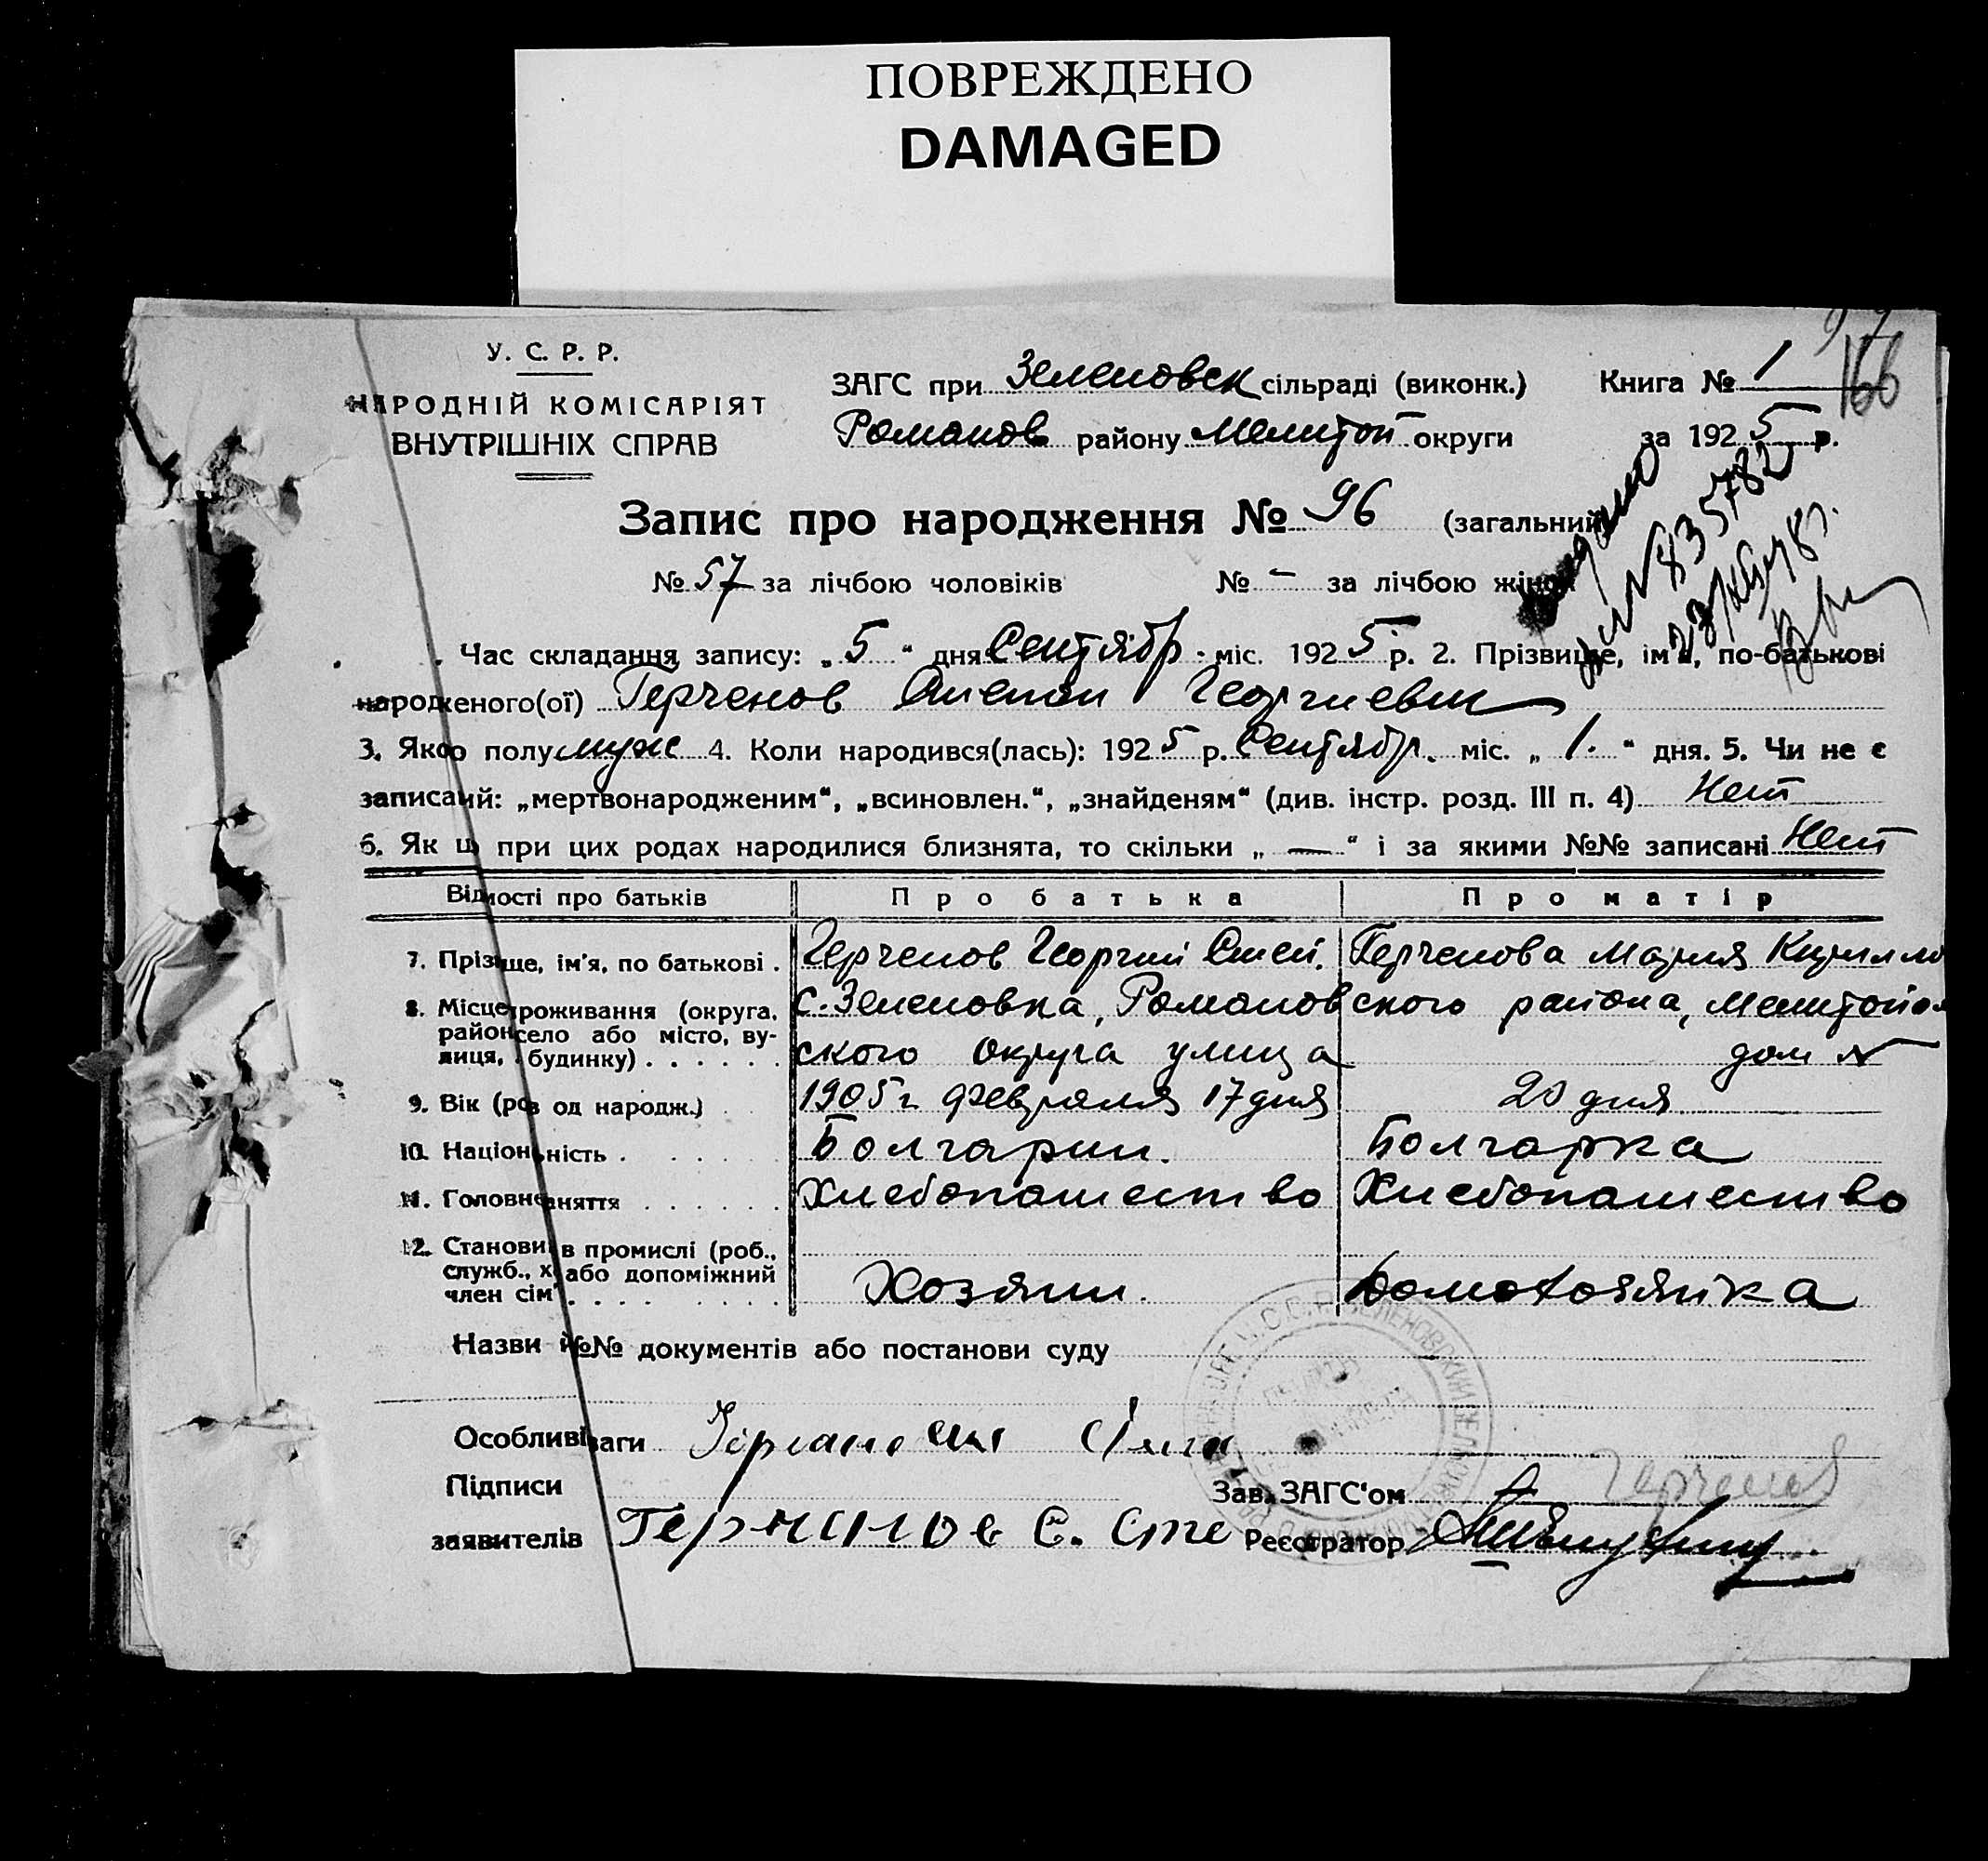 ПОВРЕЖДЕНО
DAMAGED
У. С. Р. Р.
НАРОДНІЙ КОМІСАРІЯТ
ВНУТРІШНІХ СПРАВ
ЗАГС при Зеленовск сільраді (виконк.) Книга № 1
166
Романов району Мелитоп округи за 1925 р.
Запис про народження № 96 (загальний)
№ 57 за лічбою чоловіків № - за лічбою жінок
Час складання запису: „5“ дня Сентябр. міс. 1925 р. 2. Прізвище, ім'я, по-батькові
народженого(ої) Герченов Степан Георгиевич
3. Якого полу муж 4. Коли народився(лась): 1925 р. Сентябр. міс. „1.“ дня. 5. Чи не є
записаний: „мертвонародженим“, „всиновлен.“, „знайденям“ (див. інстр. розд. III п. 4) Нет
6. Як що при цих родах народилися близнята, то скільки „—“ і за якими №№ записані Нет
Відомості про батьків Про батька Про матір
7. Прізвище, ім'я, по батькові . Герченов Георгий Степ. Герченова Мария Кирилло
8. Місце проживання (округа, с. Зеленовка, Романовского района, Мелитополь
район село або місто, ву-
лиця, будинку) . . . . . . ского округа улица дом №
9. Вік (ров од народж.) 1905 г. февраля 17 дня 20 дня
10. Національність . Болгарин. Болгарка
11. Головне заняття . . . . . . Хлебопашество Хлебопашество
12. Становище в промислі (роб.,
служб., х або допоміжний
член сім'ї . . . . Хозяин. Домохозяйка
Назви й №№ документів або постанови суду
Особливі уваги
Підписи Зав. ЗАГС'ом Герченов
заявителів Реєстратор